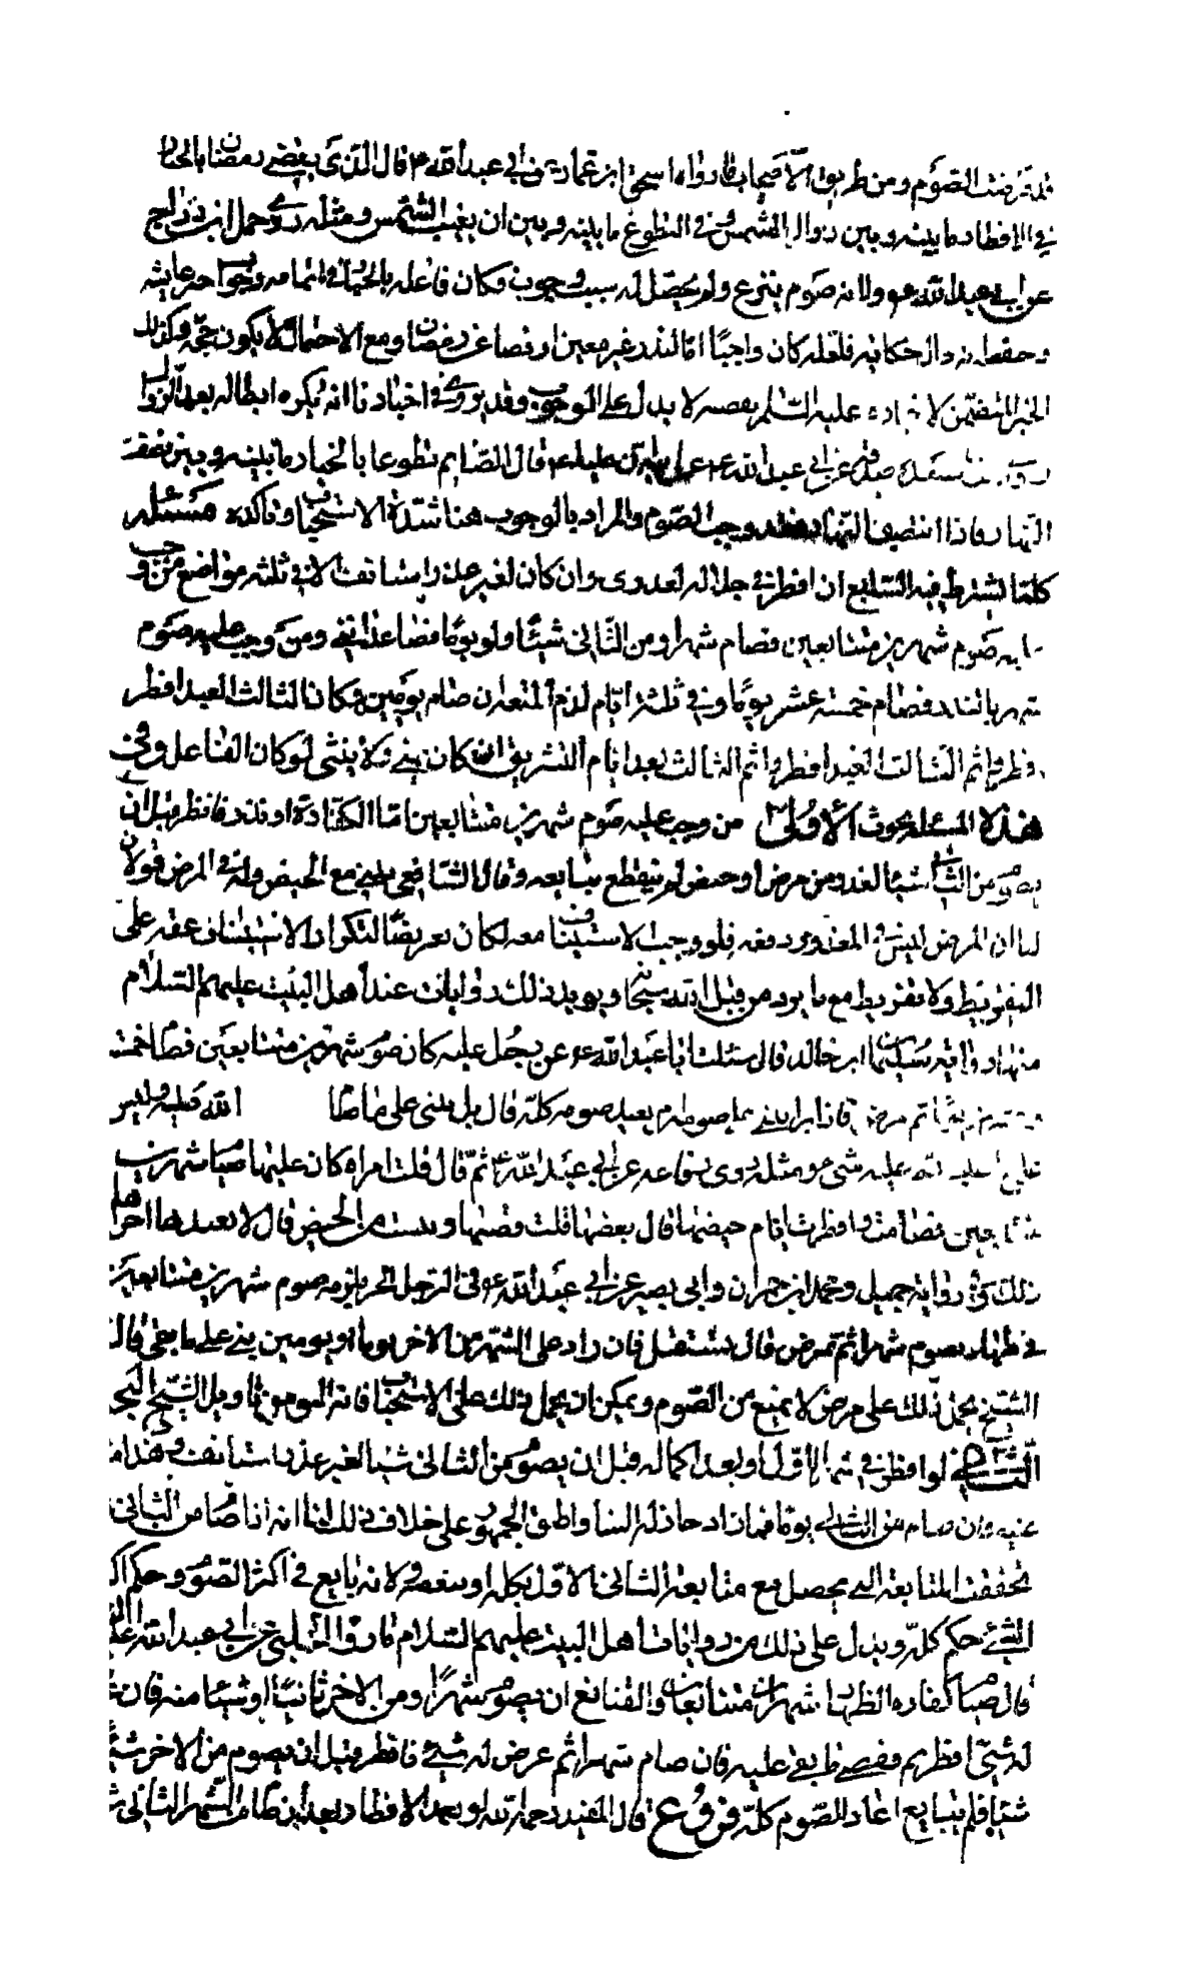 فقد فرضت الصوم ومن طريق الأصحاب ما رواه اسحق ابن عمار عن ابي عبد الله ع قال الذي يقضي رمضان بالخيار
في الافطار ما بينه وبين زوال الشمس وفي التطوع ما بينه وبين ان يغيب الشمس ومثله روى جميل ابن دراج
عن ابي عبد الله ع ولانه صوم يتبرع ولم يحصل له سبب وجوب فكان فاعله بالخيار في اتمامه وجواب خبر عايشه
وحفصه انه حكاية فلعله كان واجبًا اما لنذر غير معين او قضاء عن رمضان ومع الاحتمال لا يكون حجة وكذلك
الخبر المتضمن لاخباره عليه السلم بقصه لا يدل على الوجوب وقد روى في اخبارنا انه يكره ابطاله بعد الزوال
روى مسعدة ابن صدقة عن ابي عبد الله ع عن ابيه ان عليا ع قال الصايم تطوعا بالخيار ما بينه وبين نصف
النهار فاذا انتصف النهار فقد وجب الصوم والمراد بالوجوب هنا شدة الاستحباب وتاكده مسئله
كلما يشترط فيه التتابع ان افطر في خلاله لعذر بنى وان كان لغير عذر استانف الا في ثلثه مواضع من وجب
عليه صوم شهرين متتابعين فصام شهرا ومن الثاني شيئًا ولو يومًا قضاء عذاتفه ومن وجب عليه صوم
شهر بالنذر فصام خمسة عشر يومًا وفي ثلثة ايام لدم المتعة ان صام يومين وكان الثالث العيد افطر
وافطر واتم الثالث العيد افطر واتم الثالث بعد ايام التشريق ان كان بمنى ولا يبنى لو كان الفاصل غيره وفي
هذه المسئله بحوث الأولى من وجب عليه صوم شهرين متتابعين اما لكفارة او نذر فافطر قبل ان
يصوم من الثاني شيئا لعذر من مرض او حيض لم ينقطع تتابعه وقال الشافعي يبنى مع الحيض وله في المرض قولان
لنا ان المرض ليس في المقدور دفعه فلو وجب الاستيناف معه لكان تعريضًا لتكرار الاستيناف عقوبة على
التفريط ولا تفريط مع ما يرد من قبل الله سبحانه ويؤيد ذلك روايات عند أهل البيت عليهم السلام
منها رواية سليمان ابن خالد قال سئلت ابا عبد الله ع عن رجل عليه كان صوم شهرين متتابعين فصام خمسة
وعشرين يومًا ثم مرض فاذا برأ يبنى على صومه ام يعيد صومه كله قال بل يبنى على ما صام الله عليه وليس
على ما غلب الله عليه شيء ومثله روى رفاعه عن ابي عبد الله ع ثم قال قلت امراة كان عليها صيام شهرين
متتابعين فصامت وافطرت ايام حيضها قال يقضيها قلت قضتها ويئست من الحيض قال لا تعيدها اجزاها
ذلك وفي رواية جميل ومحمد ابن حمران وابي بصير عن ابي عبد الله ع في الرجل الحر يلزمه صوم شهرين متتابعين
في ظهار يصوم شهرا ثم يمرض قال يستقبل فان زاد على الشهر من الاخر يوما او يومين بنى على ما بقي قال
الشيخ يحمل ذلك على مرض لا يمنع من الصوم ويمكن ان يحمل ذلك على الاستحباب فانه اليوم من تاويل الشيخ البحث
الثاني لو افطر في شهر الاول او بعد اكماله قبل ان يصوم من الثاني شيئا لغير عذر استانف وهذا
عنيه وان صام من الثاني يوما فما زاد جاز له البناء واطبق الجمهور على خلاف ذلك لنا انه اذا صام من الثاني
تحققت المتابعة التي يحصل مع متابعة الثاني الاول بكله او ببعضه ولانه تابع في اكثر الصوم وحكم اكثر
الشئ حكم كله ويدل على ذلك من روايات أهل البيت عليهم السلام ما رواه الحلبي عن ابي عبد الله عليه
قال صيام كفارة الظهار شهران متتابعان والتتابع ان يصوم شهرًا ومن الاخر ثانيًا او شيئا منه فان
له شيئ افطر ثم قضى ما بقي عليه فان صام شهرا ثم عرض له شئ فافطر قبل ان يصوم من الاخر شيئًا
شيئا فلم يتابع اعاد الصوم كله فروع قال المفيد رحمه الله لو تعمد الافطار بعد ان صام من الشهر الثاني